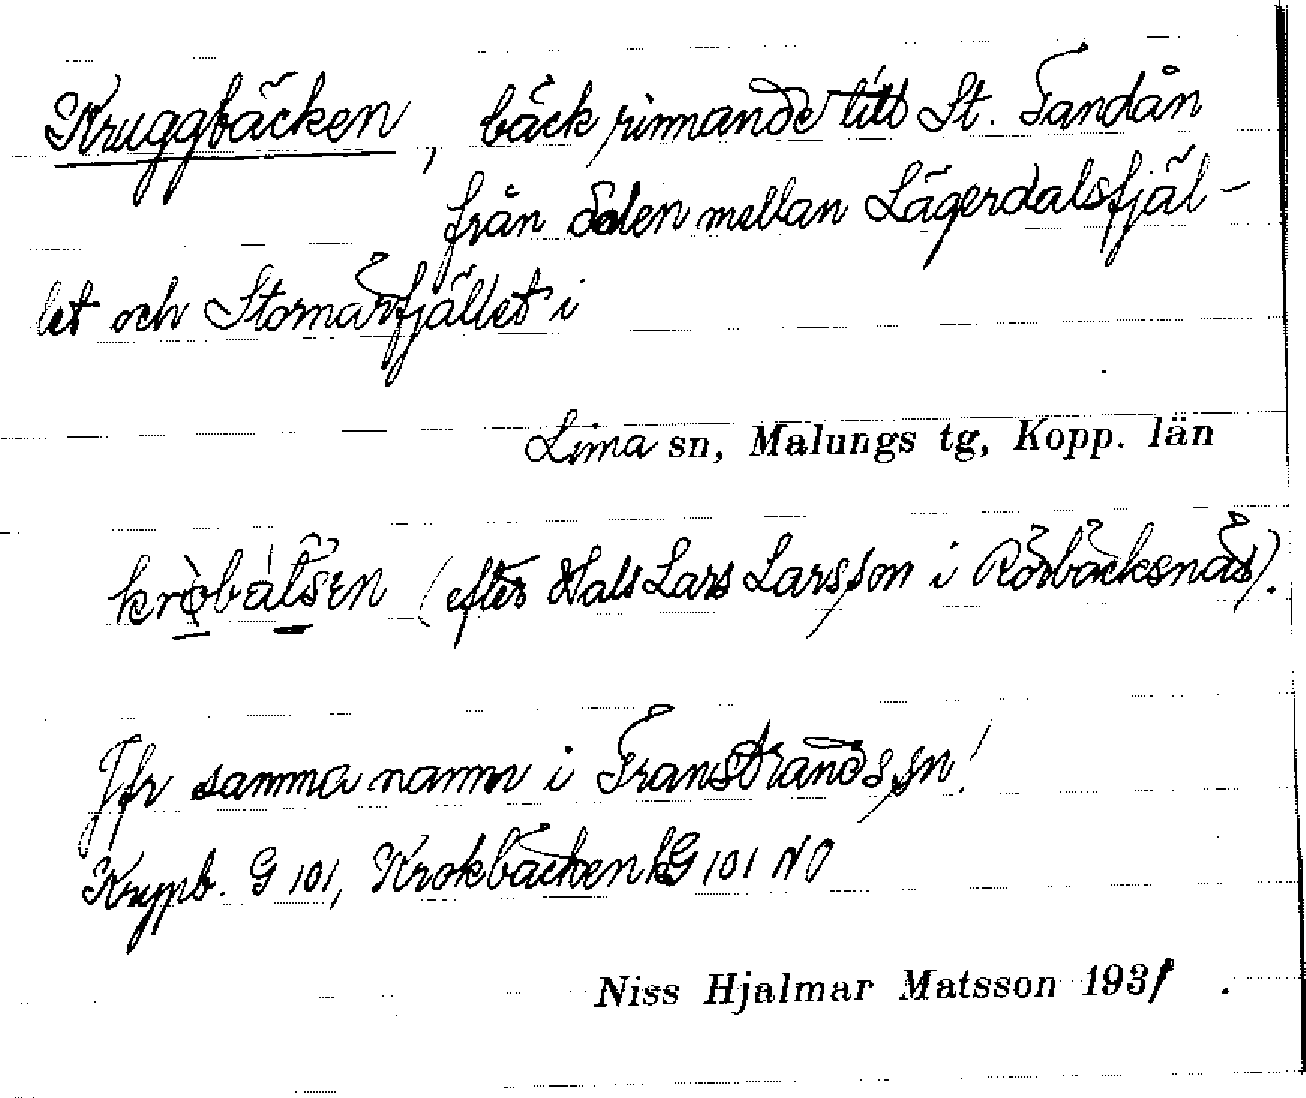 Kruggbäcken, bäck rinnande till St. Tandån
från dalen mellan Lägerdalsfjäl-
let och Stornarfjället i
Lima sn, Malungs tg, Kopp. län
(efter Hals Lars Larsson i Rörbäcksnäs).
Jfr samma namn i Transtrands sn!
Kryppb. G 101, Krokbäcken G 101 NO
Niss Hjalmar Matsson 1931.